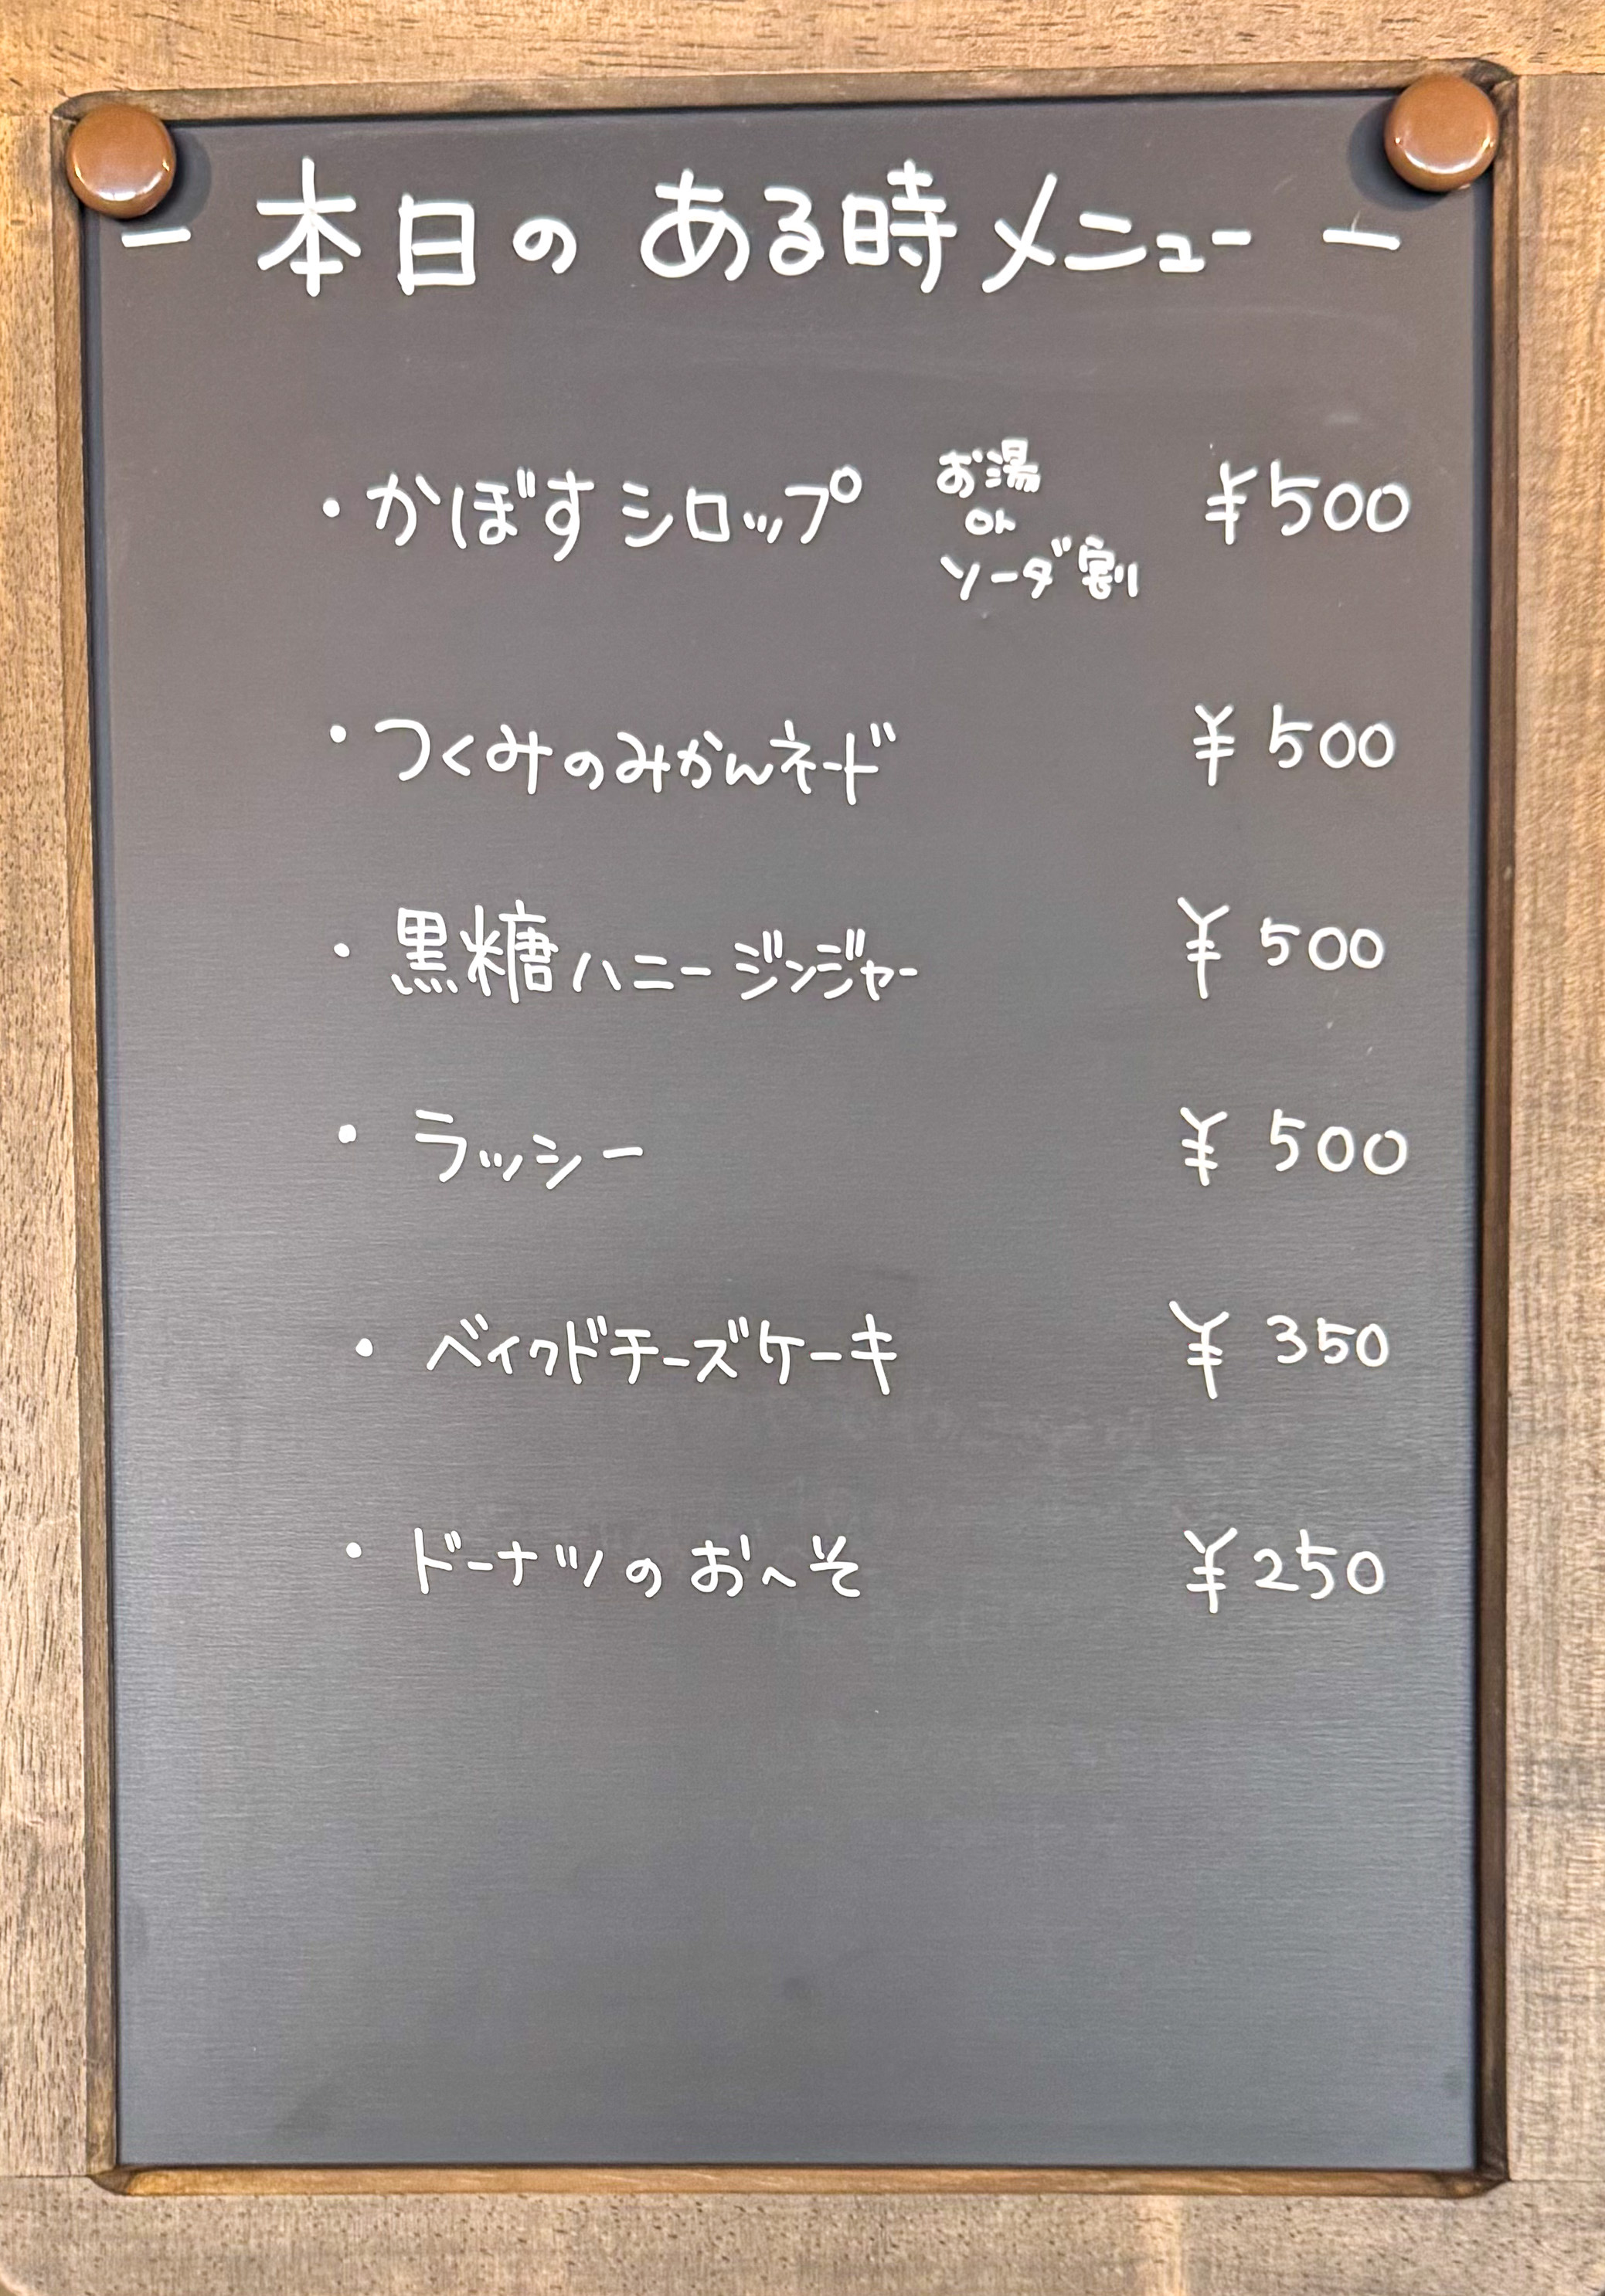 - 本日の ある時メニュー -
・かぼすシロップ お湯 or ソーダ割 ¥500
・つくみのみかんネード ¥500
・黒糖ハニージンジャー ¥500
・ラッシー ¥500
・ベイクドチーズケーキ ¥350
・ドーナツのおへそ ¥250